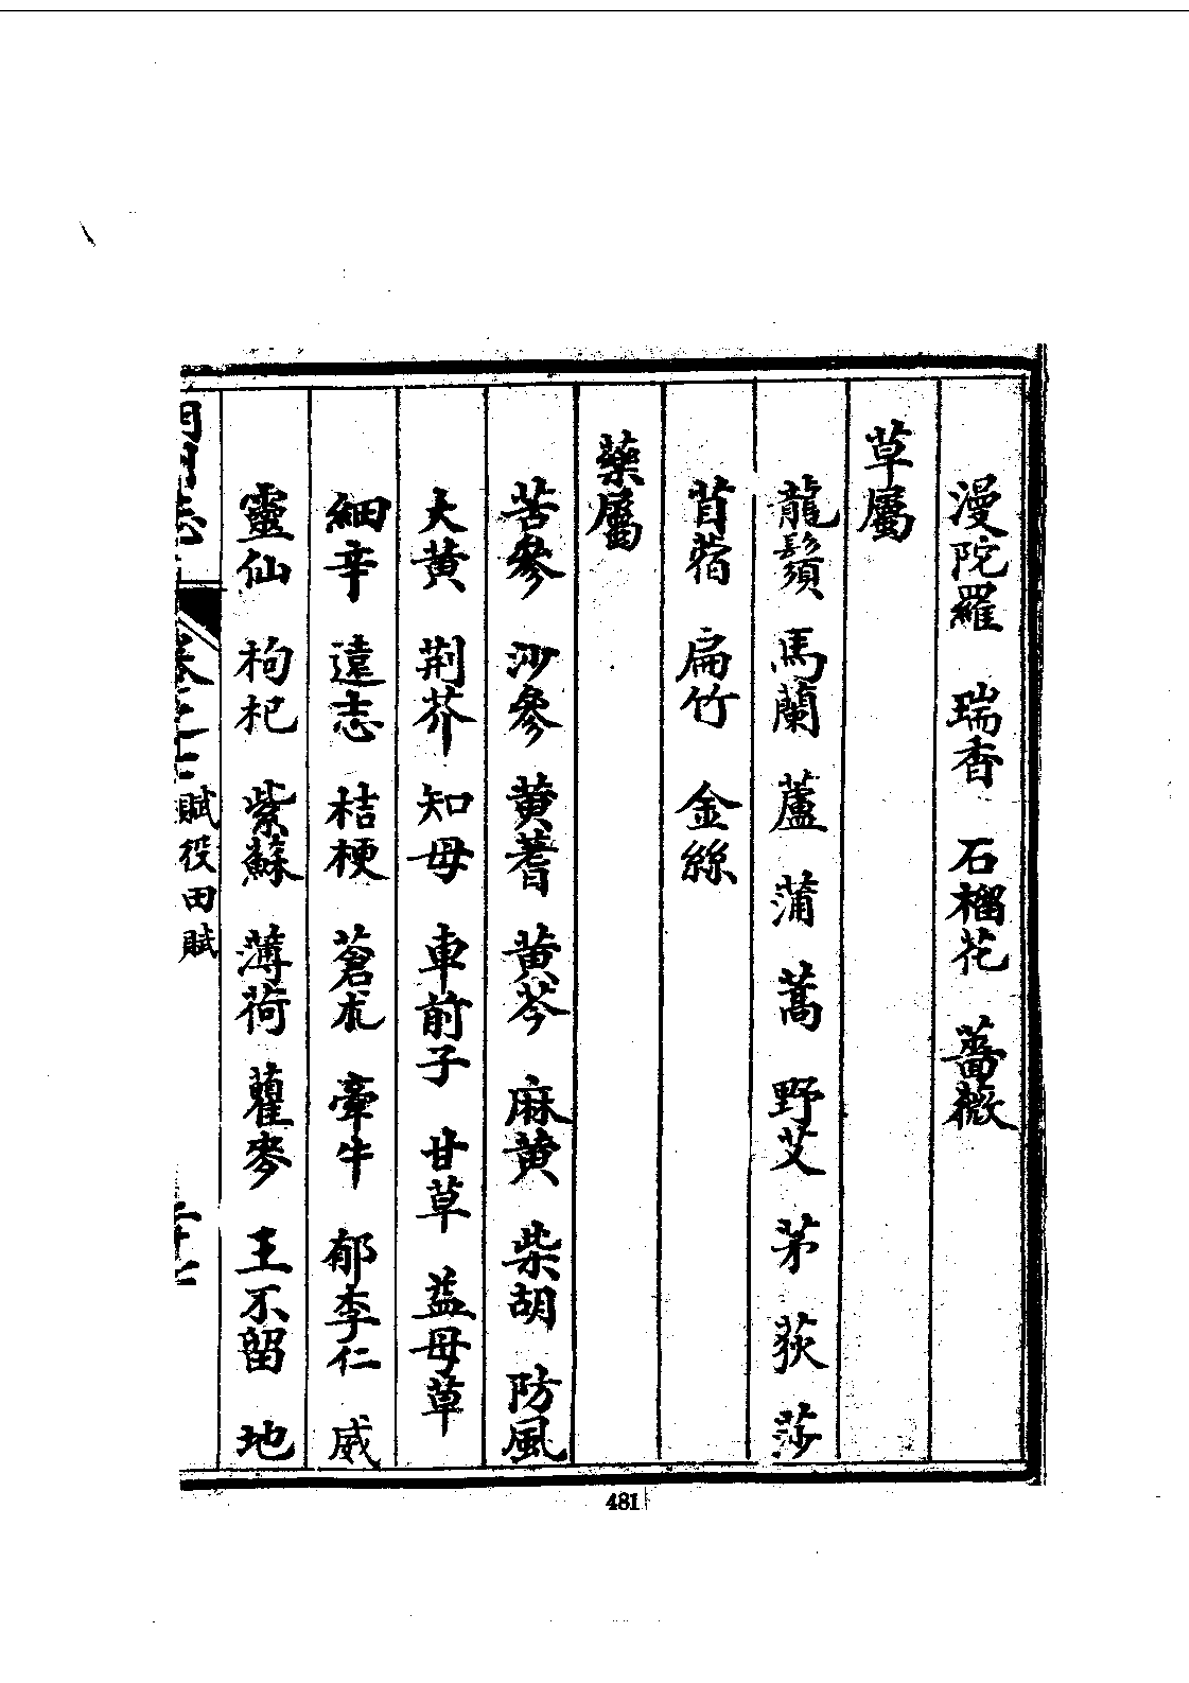 漫陀羅　瑞香　石榴花　薔薇
草屬
龍鬚　馬蘭　蘆　蒲　蒿　野艾　茅　荻　莎
苜蓿　扁竹　金絲
藥屬
苦參　沙參　黃蓍　黃芩　麻黃　柴胡　防風
大黃　荆芥　知母　車前子　甘草　益母草
細辛　遠志　桔梗　蒼朮　牽牛　郁李仁　威
靈仙　枸杞　紫蘇　薄荷　蘿麥　王不留　地
志　卷之二　賦役田賦
481